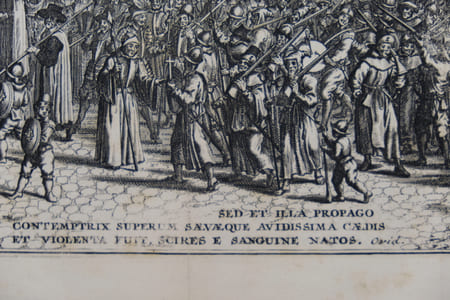 SED ET ILLA PROPAGO
CONTEMPTRIX SUPERUM SÆVÆQUE AVIDISSIMA CÆDIS
ET VIOLENTA FUIT, SCIRES E SANGUINE NATOS. Ovid.